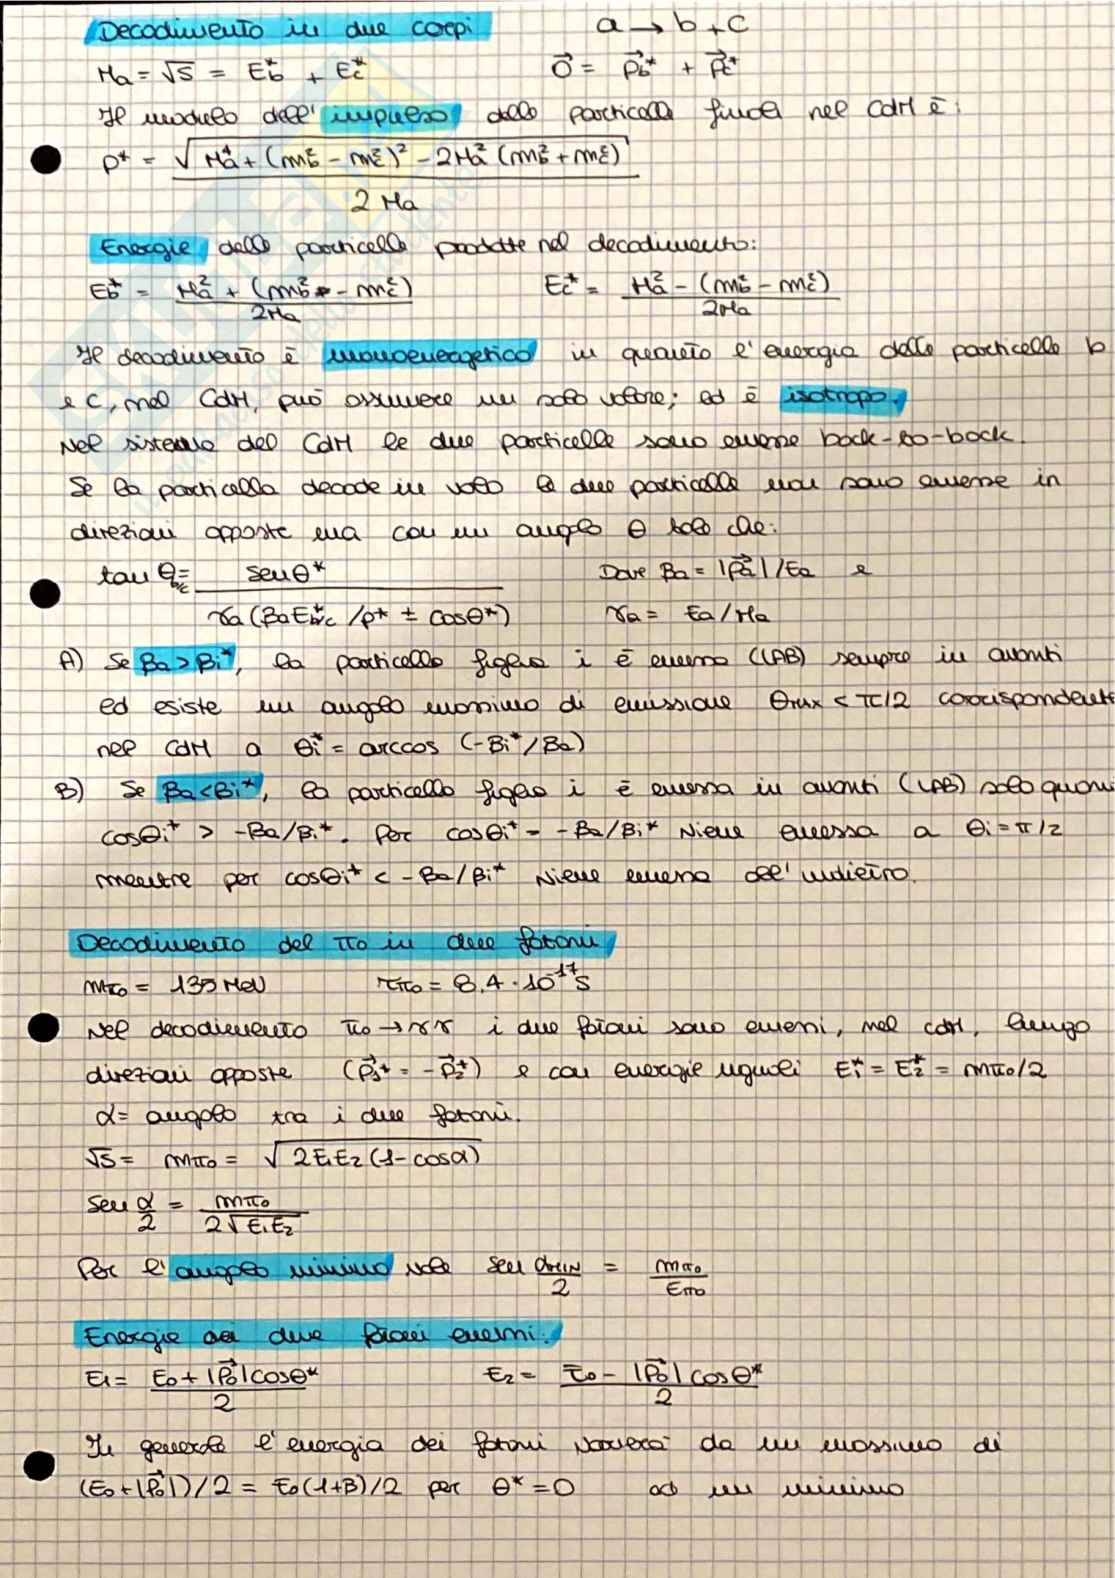 Decadimento in due corpi    a → b + c
Ma = √s = Eb* + Ec*    0⃗ = p⃗b* + p⃗c*
Il modulo dell'impulso delle particelle finali nel CdM è:
p* = √(Ma⁴ + (mb² - mc²)² - 2Ma² (mb² + mc²)) / 2Ma
Energie delle particelle prodotte nel decadimento:
Eb* = (Ma² + (mb² - mc²)) / 2Ma    Ec* = (Ma² - (mb² - mc²)) / 2Ma
Il decadimento è monoenergetico in quanto l'energia delle particelle b
e c, nel CdM, può assumere un solo valore; ed è isotropo.
Nel sistema del CdM le due particelle sono emesse back-to-back.
Se la particella decade in volo le due particelle non sono emesse in
direzioni opposte ma con un angolo θ tale che:
tan θb/c = senθ* / γa (βa Eb/c* / p* ± cosθ*)    Dove βa = |p⃗a| / Ea e
γa = Ea / Ma
A) Se βa > βi*, la particella figlia i è emessa (LAB) sempre in avanti
ed esiste un angolo massimo di emissione θmax < π/2 corrispondente
nel CdM a θi* = arccos (-βi* / βa)
B) Se βa < βi*, la particella figlia i è emessa in avanti (LAB) solo quando
cosθi* > -βa/βi*. Per cosθi* = -βa/βi* viene emessa a θi = π/2
mentre per cosθi* < -βa/βi* viene emessa all'indietro.
Decadimento del π0 in due fotoni
mπ0 = 135 MeV    τπ0 = 8.4 · 10⁻¹⁷ s
Nel decadimento π0 → γγ i due fotoni sono emessi, nel CdM, lungo
direzioni opposte (p⃗1* = -p⃗2*) e con energie uguali E1* = E2* = mπ0/2
α = angolo tra i due fotoni.
√s = mπ0 = √(2E1E2 (1 - cosα))
sen α/2 = mπ0 / 2√(E1E2)
Per l'angolo minimo vale sen αMIN/2 = mπ0 / Eπ0
Energie dei due fotoni emessi:
E1 = (E0 + |p⃗0| cosθ*) / 2    E2 = (E0 - |p⃗0| cosθ*) / 2
In generale l'energia dei fotoni varierà da un massimo di
(E0 + |p⃗0|) / 2 = E0 (1+β) / 2 per θ* = 0 ad un minimo